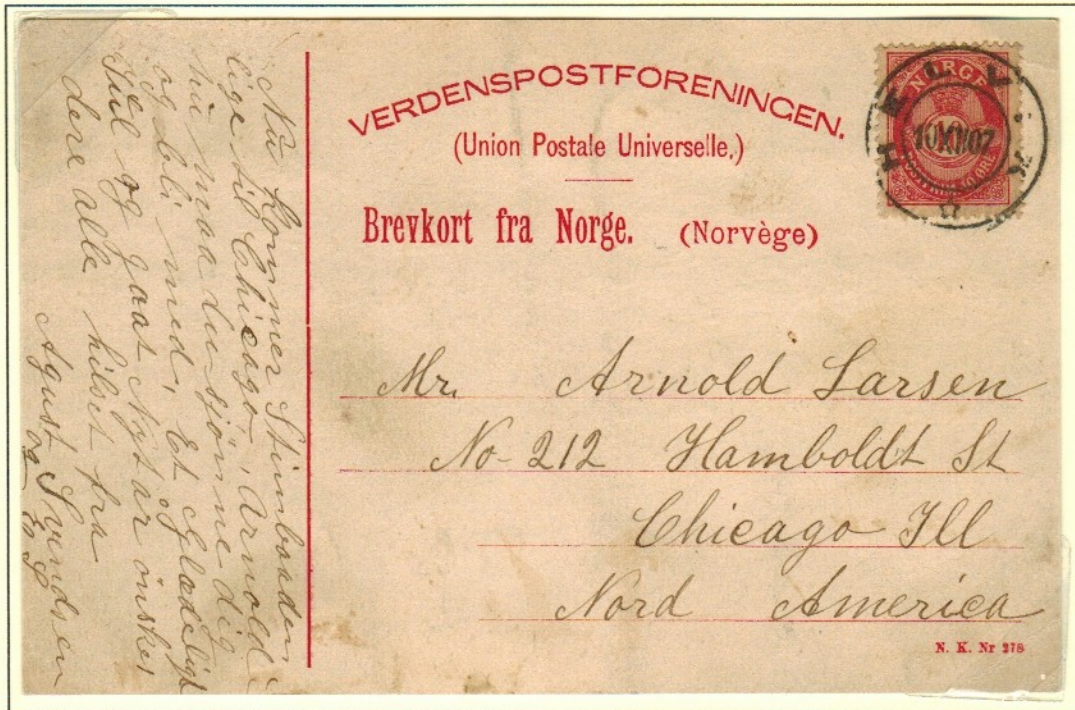 VERDENSPOSTFORENINGEN.
(Union Postale Universelle.)
Brevkort fra Norge. (Norvège)
NORGE
10 XII 07
HELLVIK
Mr. Arnold Larsen
No 212 Hamboldt St
Chicago Ill
Nord America
N. K. Nr 278
Nu kommer Stimbaaden
lige til Chicago, Arnold
nu maa du sjønne dig
og bli med, Et glædeligt
Jul og gaat Nyt år önsker
dere alle hilset fra
Agust Svendsen
og